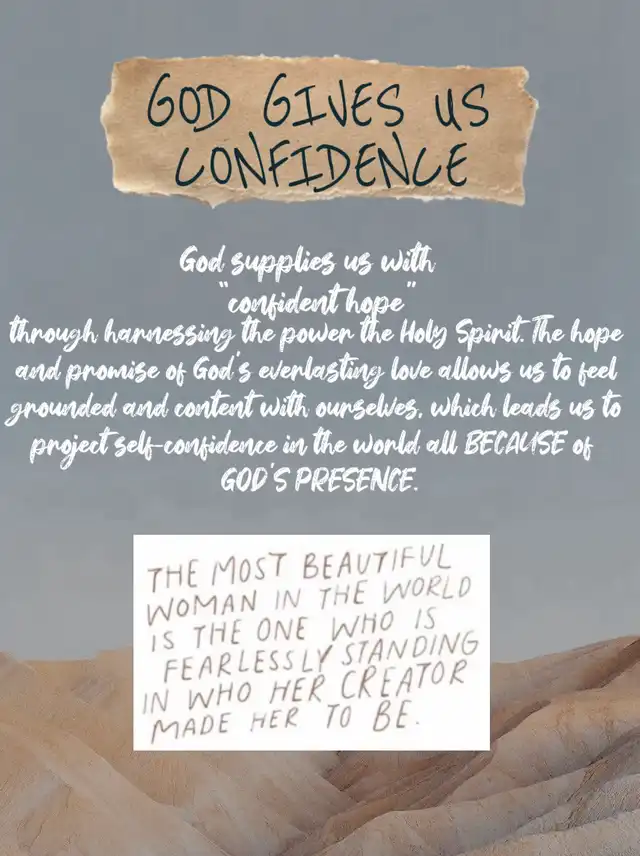 GOD GIVES US
CONFIDENCE
God supplies us with
"confident hope"
through harnessing the power the Holy Spirit. The hope
and promise of God's everlasting love allows us to feel
grounded and content with ourselves, which leads us to
project self-confidence in the world all BECAUSE of
GOD'S PRESENCE.
THE MOST BEAUTIFUL
WOMAN IN THE WORLD
IS THE ONE WHO IS
FEARLESSLY STANDING
IN WHO HER CREATOR
MADE HER TO BE.